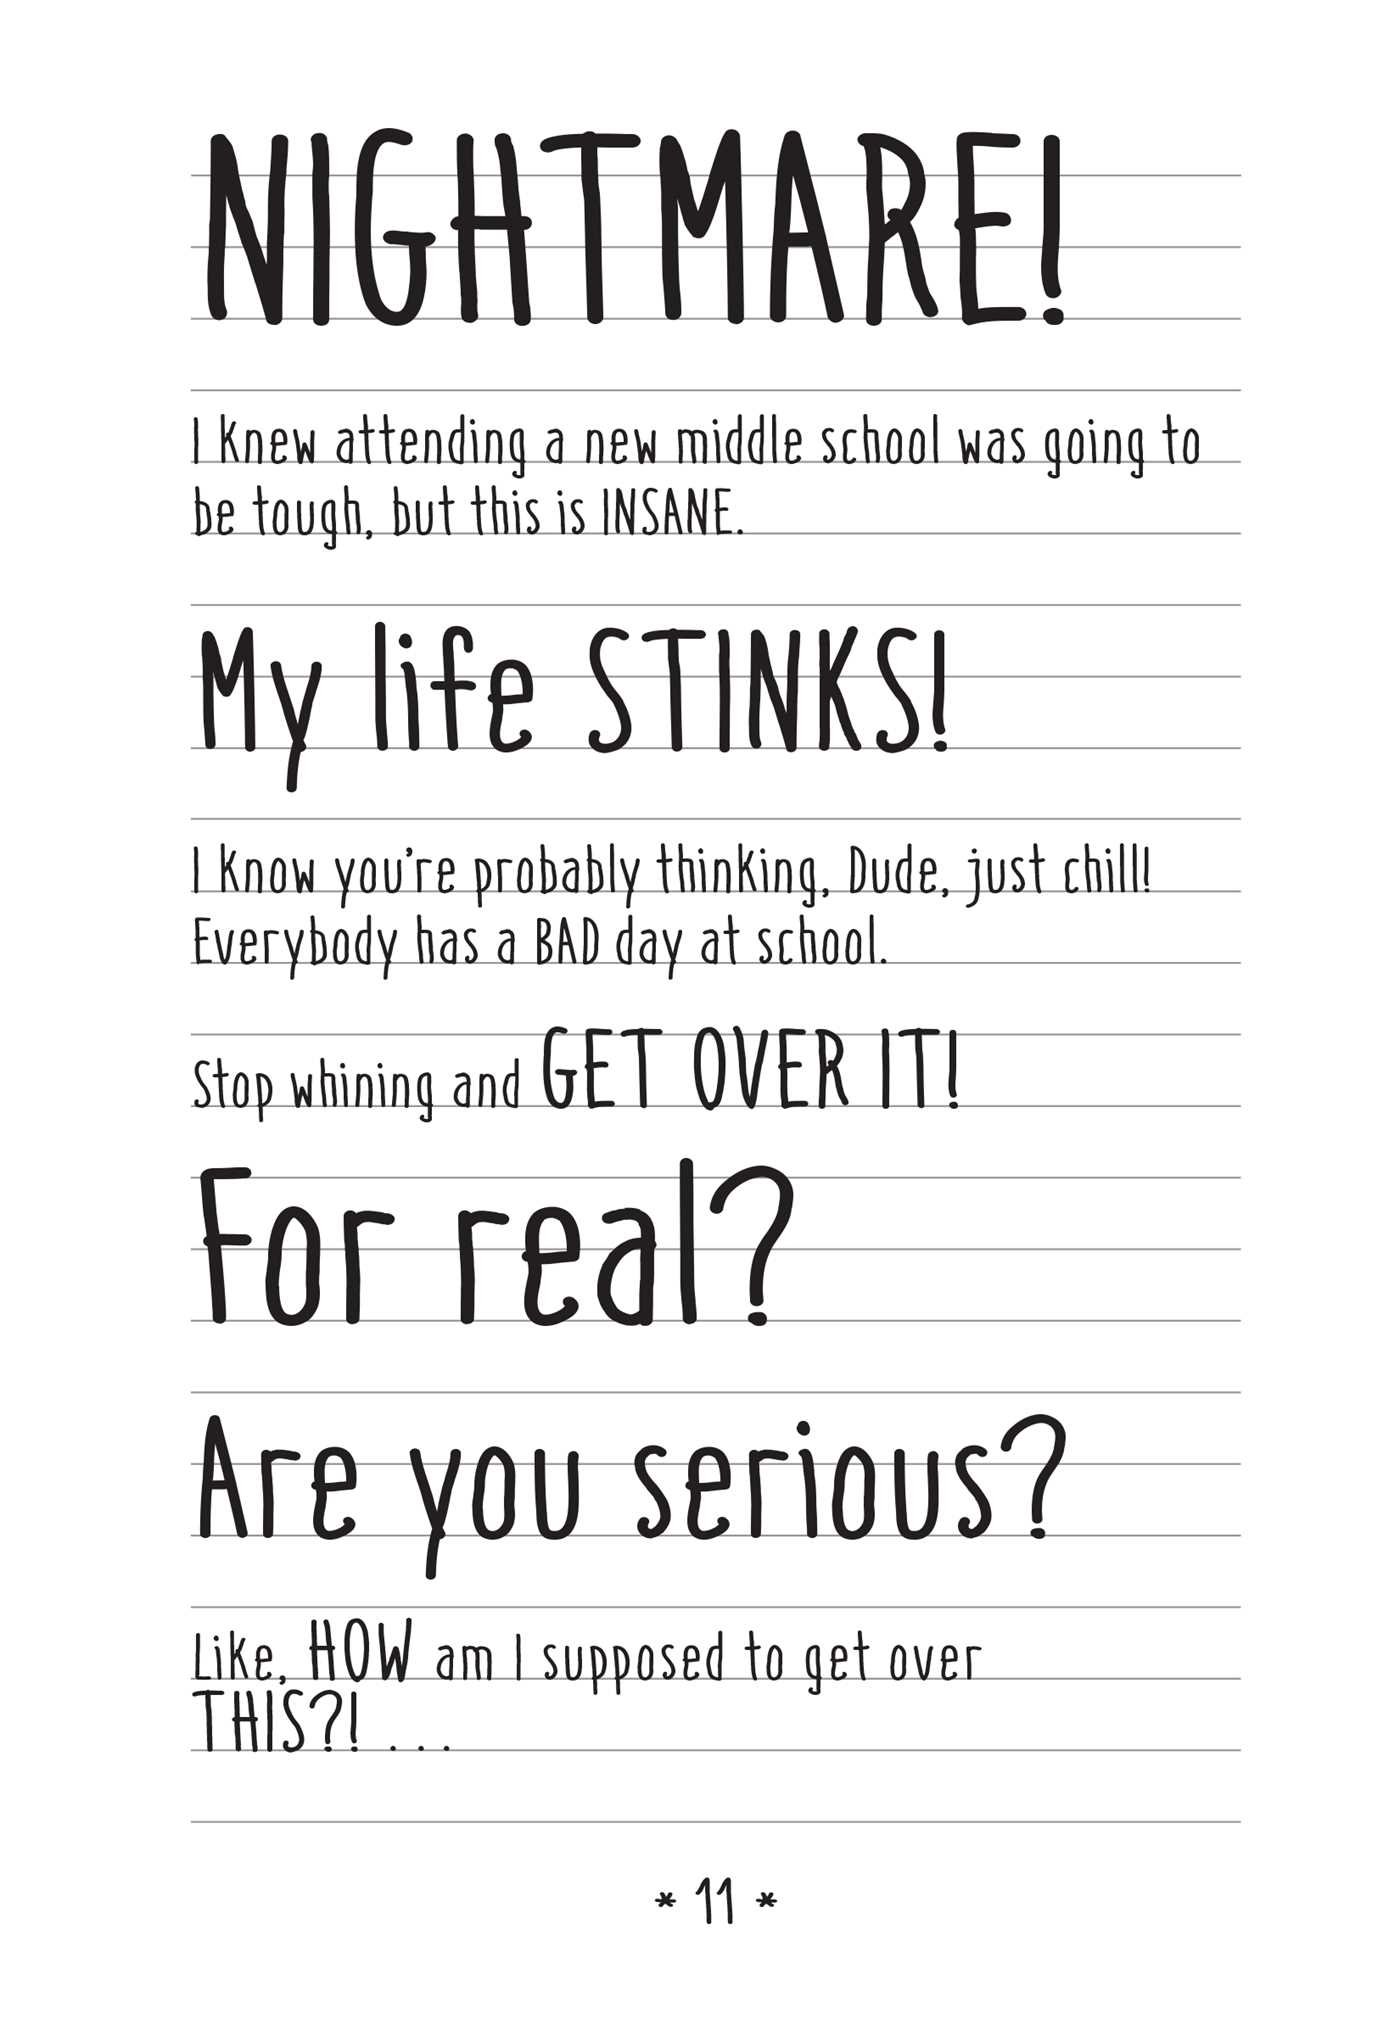 NIGHTMARE!
I knew attending a new middle school was going to
be tough, but this is INSANE.
My life STINKS!
I know you're probably thinking, Dude, just chill!
Everybody has a BAD day at school.
Stop whining and GET OVER IT!
For real?
Are you serious?
Like, HOW am I supposed to get over
THIS?! . . .
* 11 *